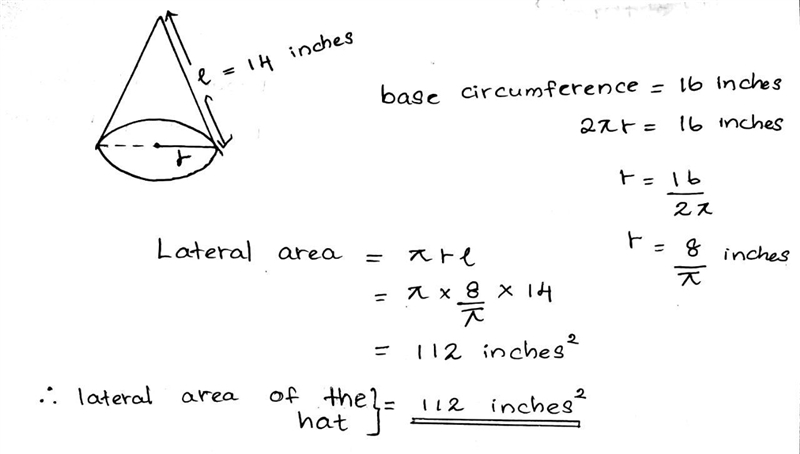 l = 14 inches
r
base circumference = 16 inches
2πr = 16 inches
r = 16/2π
r = 8/π inches
Lateral area = πrl
= π × 8/π × 14
= 112 inches²
∴ lateral area of the hat } = 112 inches²